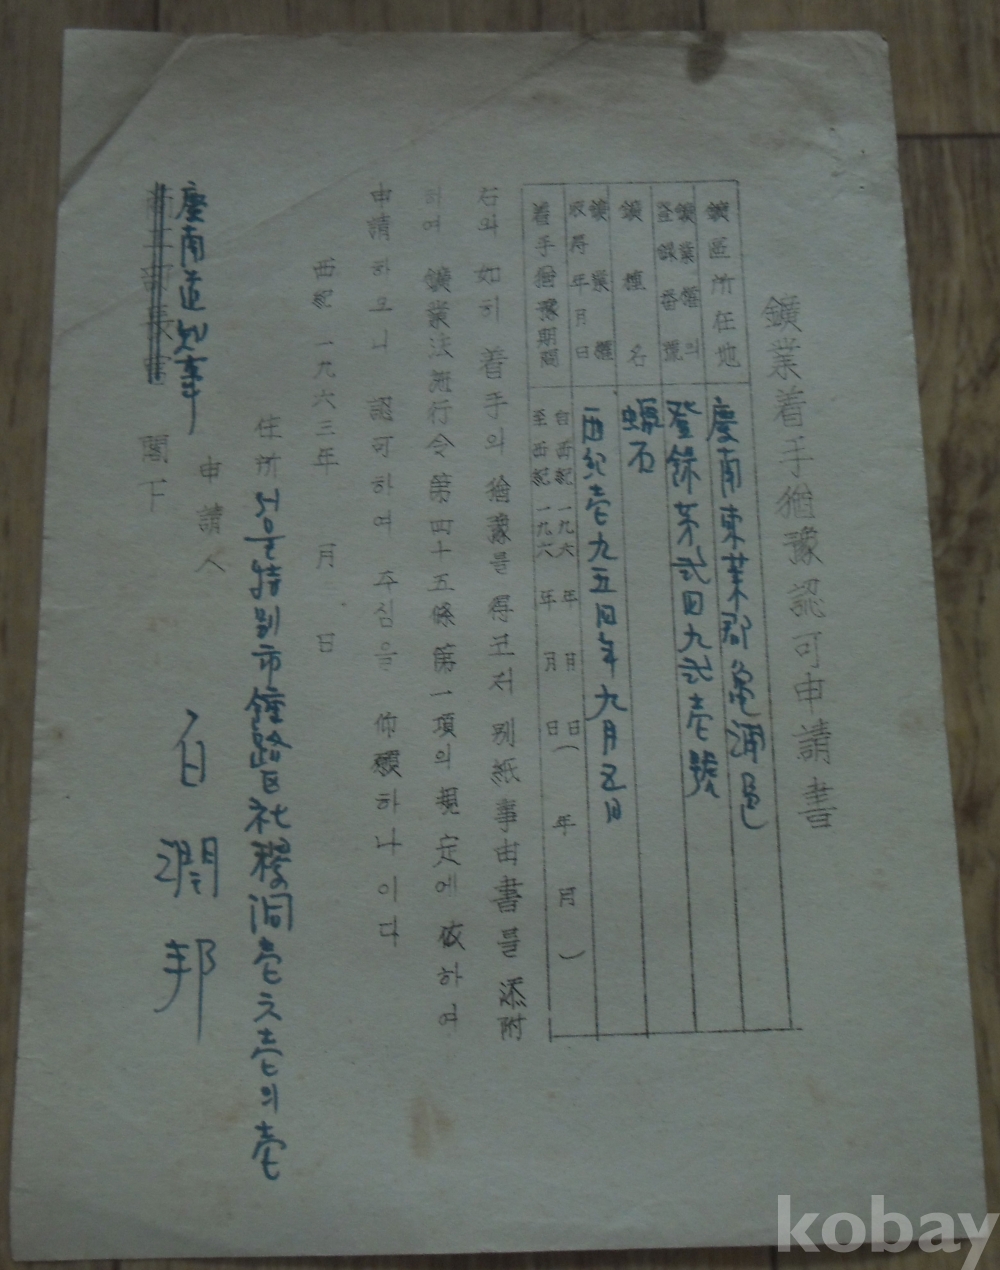 鑛業着手猶豫認可申請書
鑛區所在地 慶南東萊郡龜浦邑
鑛業權의登録番號 登錄第貳四九貳壱號
鑛種名 蝋石
鑛業權取得年月日 西紀壱九五四年九月五日
着手猶豫期間 自西紀一九六 年 月 日 至西紀一九六 年 月 日 ( 年 月 )
右와 如히 着手의 猶豫를 得코저 別紙事由書를 添附
하여 鑛業法施行令第四十五條第一項의 規定에 依하여
申請하오니 認可하여 주심을 仰願하나이다
西紀 一九六三年 月 日
住所 서울特別市鍾路区社稷洞壱 壱의壱
申請人 白潤邦
慶南道知事
商工部長官 閣下
kobay